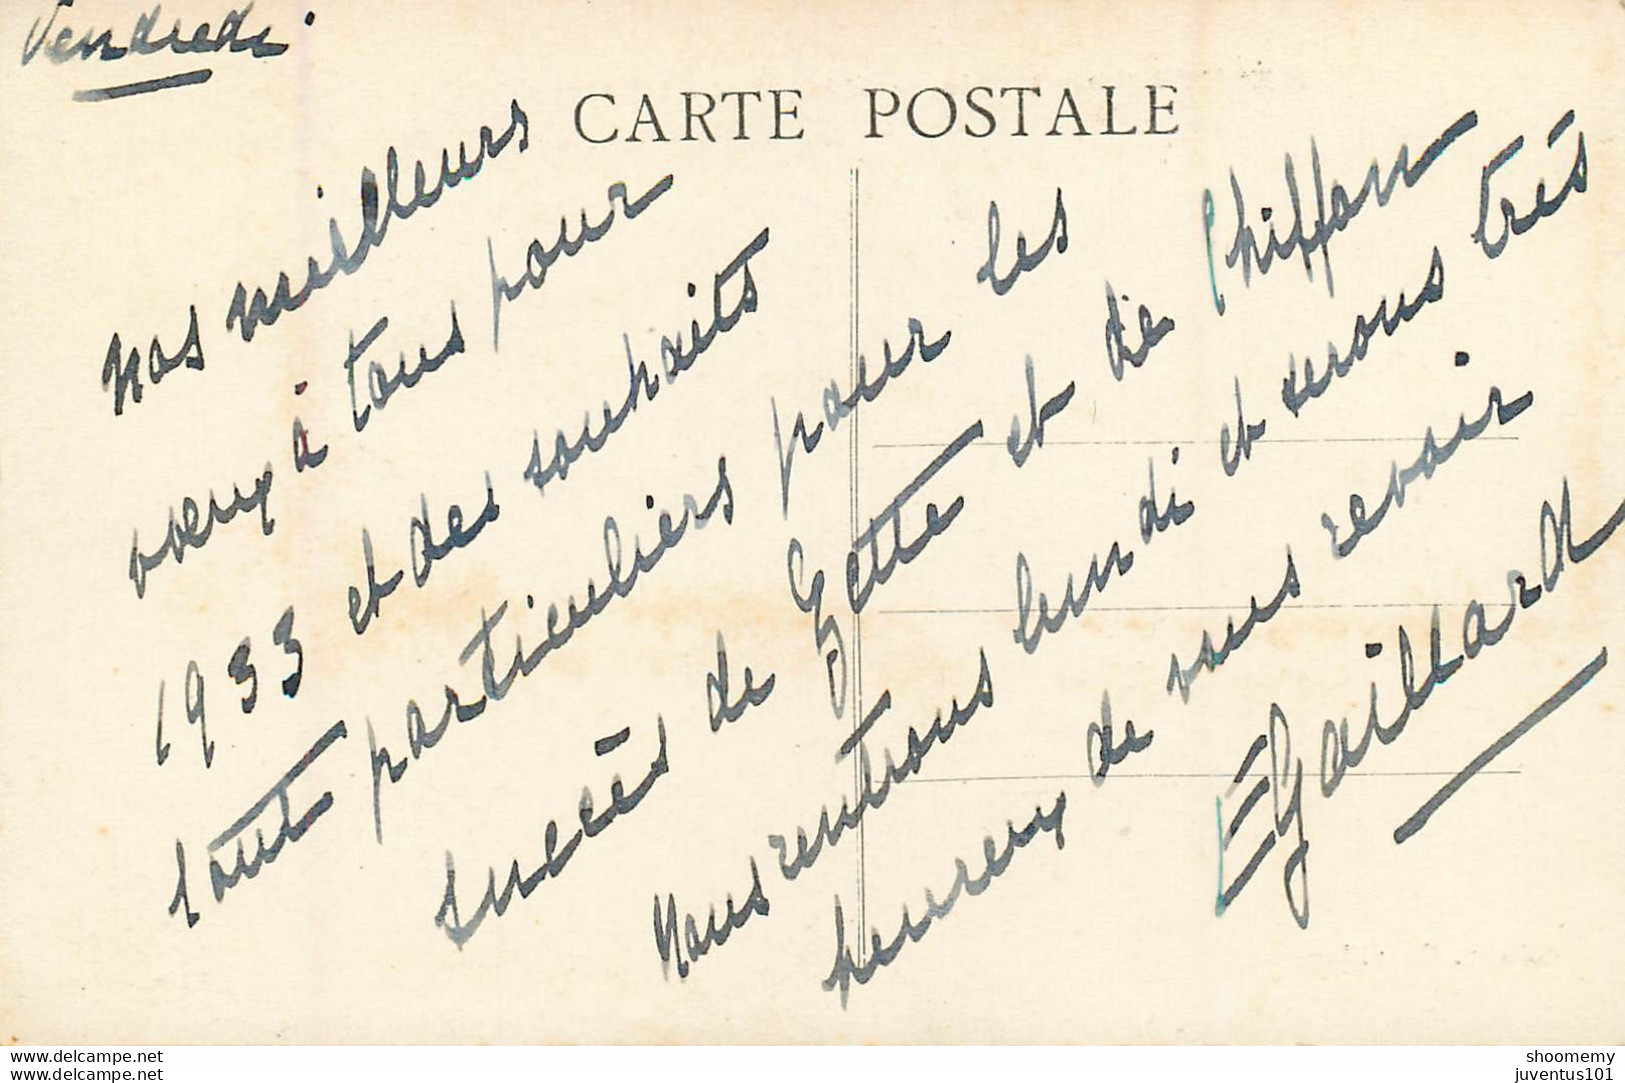 Vendredi.
CARTE POSTALE
Nos meilleurs
voeux à tous pour
1933 et des souhaits
tout particuliers pour les
succès de Zette et de Chiffon
Nous rentrons lundi et serons très
heureux de vous revoir
EGaillard
www.delcampe.net
www.delcampe.net
shoomemy
juventus101